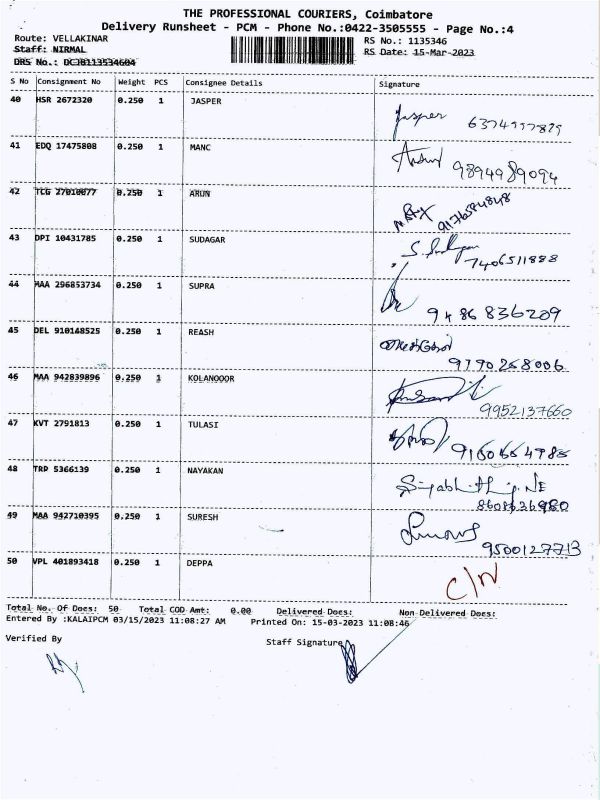 THE PROFESSIONAL COURIERS, Coimbatore
Delivery Runsheet - PCM - Phone No.:0422-3505555 - Page No.:4
Route: VELLAKINAR RS No.: 1135346
Staff: NIRMAL RS Date: 15-Mar-2023
DRS No.: DCJB113534604
S No Consignment No Weight PCS Consignee Details Signature
40 HSR 2672320 0.250 1 JASPER Jasper
41 EDQ 17475808 0.250 1 MANC 9894989094
42 TCG 27010077 0.250 1 ARUN
43 DPI 10431785 0.250 1 SUDAGAR 7406511888
44 MAA 296853734 0.250 1 SUPRA 9486836209
45 DEL 910148525 0.250 1 REASH 9790258006
46 MAA 942839896 0.250 1 KOLANOOOR 9952137660
47 KVT 2791813 0.250 1 TULASI
48 TRP 5366139 0.250 1 NAYAKAN
49 MAA 942710395 0.250 1 SURESH 9500127713
50 VPL 401893418 0.250 1 DEPPA C/N
Total No. Of Docs: 50 Total COD Amt: 0.00 Delivered Docs: Non Delivered Docs:
Entered By :KALAIPCM 03/15/2023 11:08:27 AM Printed On: 15-03-2023 11:08:46
Verified By Staff Signature